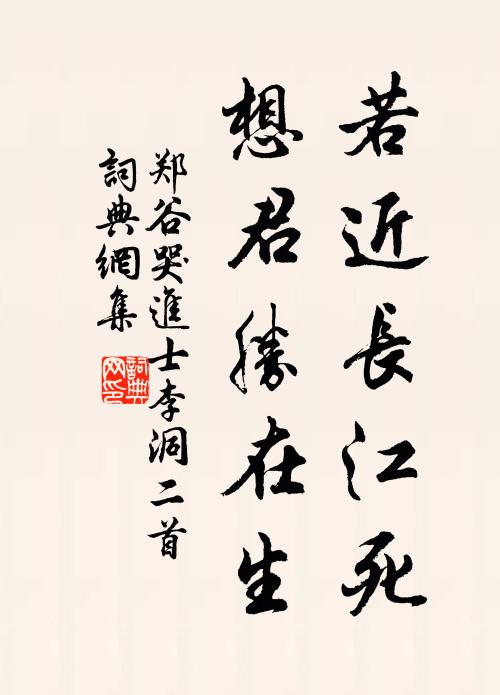 若近長江死
想君勝在生
郑谷哭進士李洞二首
詞典網集
詞典
网印